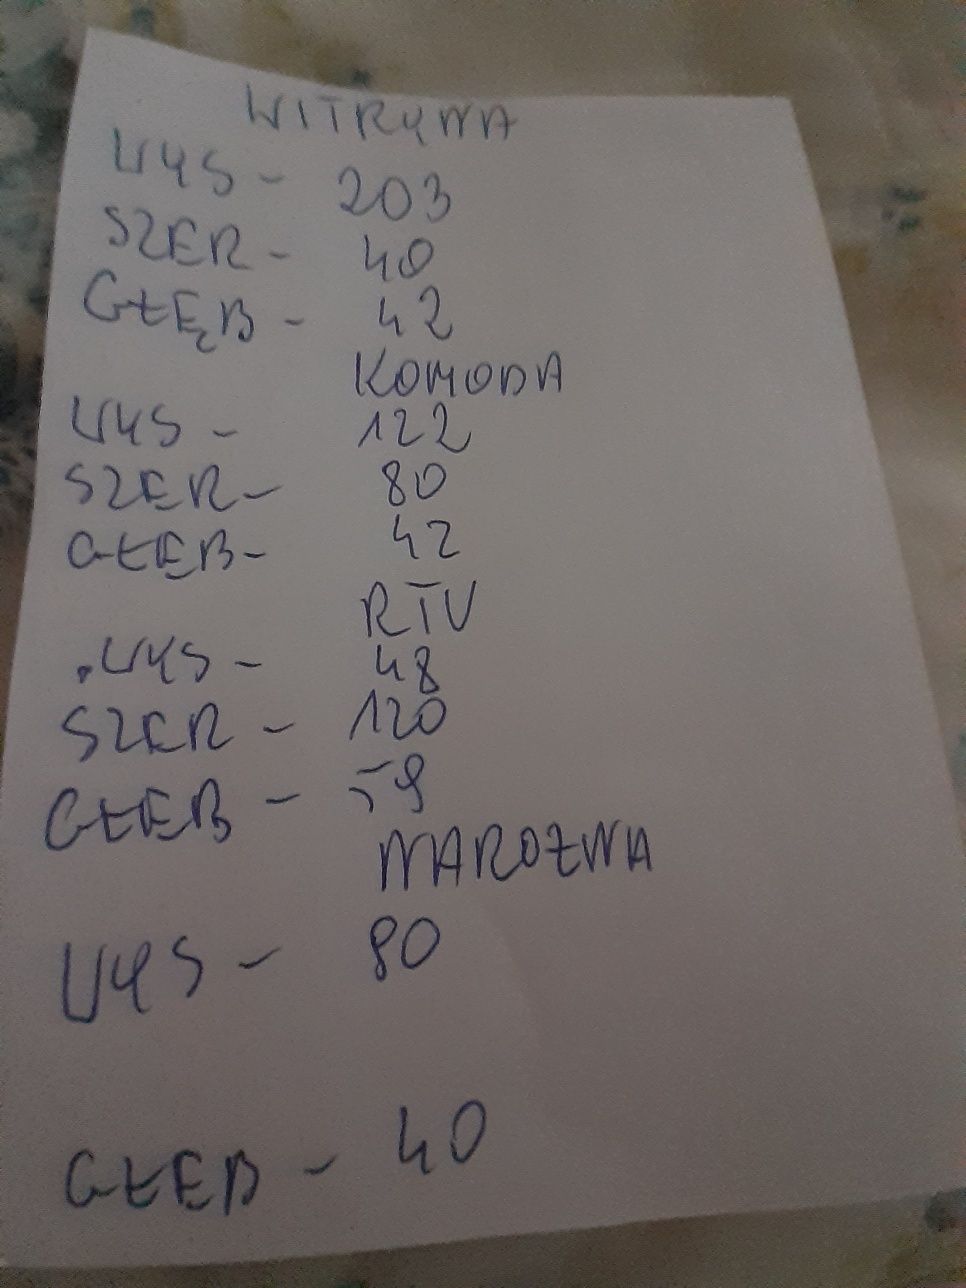 WITRYNA
WYS - 203
SZER - 40
GŁĘB - 42
KOMODA
WYS - 122
SZER - 80
GŁĘB - 42
RTV
WYS - 48
SZER - 120
GŁĘB - 59
NAROŻNA
WYS - 80
GŁĘB - 40